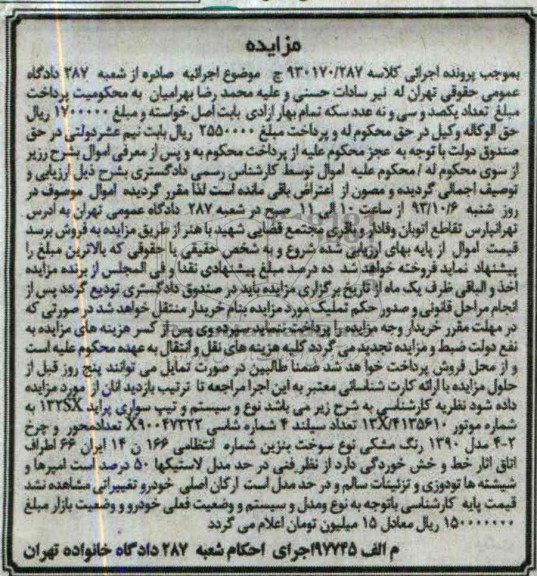 مزایده
بموجب پرونده اجرائی کلاسه ۹۳۰۱۷۰/۲۸۷ ج موضوع اجرائیه صادره از شعبه ۲۸۷ دادگاه
عمومی حقوقی تهران له نیر سادات حسنی و علیه محمد رضا بهرامیان به محکومیت پرداخت
مبلغ تعداد یکصد و سی و نه عدد سکه تمام بهار ازادی بابت اصل خواسته و مبلغ ۱۷۰۰۰۰۰ ریال
حق الوکاله وکیل در حق محکوم له و پرداخت مبلغ ۲۵۵۰۰۰۰ ریال بابت نیم عشردولتی در حق
صندوق دولت با توجه به عجز محکوم علیه از پرداخت محکوم به و پس از معرفی اموال بشرح رزیر
از سوی محکوم له / محکوم علیه اموال توسط کارشناس رسمی دادگستری بشرح ذیل ارزیابی و
توصیف اجمالی گردیده و مصون از اعتراض باقی مانده است لذا مقرر گردیده اموال موصوف در
روز شنبه ۹۳/۱۰/۶ از ساعت ۱۰ الی ۱۱ صبح در شعبه ۲۸۷ دادگاه عمومی تهران به ادرس
تهرانپارس تقاطع اتوبان وفادار و باقری مجتمع قضایی شهید با هنر از طریق مزایده به فروش برسد
قیمت اموال از پایه بهای ارزیابی شده شروع و به شخص حقیقی یا حقوقی که بالاترین مبلغ را
پیشنهاد نماید فروخته خواهد شد ده درصد مبلغ پیشنهادی نقدا و فی المجلس از برنده مزایده
اخذ و الباقی ظرف یک ماه از تاریخ برگزاری مزایده باید در صندوق دادگستری تودیع گردد پس از
انجام مراحل قانونی و صدور حکم تملیک مورد مزایده بنام خریدار منتقل خواهد شد در صورتی که
در مهلت مقرر خریدار وجه مزایده را پرداخت ننماید سپرده وی پس از کسر هزینه های مزایده به
نفع دولت ضبط و مزایده تجدید می گردد کلیه هزینه های نقل و انتقال به عهده محکوم علیه است
و از محل فروش پرداخت خوا هد شد ضمنا طالبین در صورت تمایل می توانند پنج روز قبل از
حلول مزایده با ارائه کارت شناسائی معتبر به این اجرا مراجعه تا ترتیب بازدید انان از مورد مزایده
داده شود نظریه کارشناسی به شرح زیر می باشد نوع و سیستم و تیپ سواری پراید ۱۳۲SX به
شماره موتور ۱۳X/۴۱۳۵۶۱۰ تعداد سیلند ۴ شماره شاسی X۹۰۰۴۷۳۲۲ تعدادمحور و چرخ
۴-۲ مدل ۱۳۹۰ رنگ مشکی نوع سوخت بنزین شماره انتظامی ۱۶۶ ن ۱۴ ایران ۶۶ اطراف
اتاق اثار خط و خش خوردگی دارد از نظر فنی در حد مدل لاستیکها ۵۰ درصد است امیرها و
شیشته ها تودوزی و تزئینات سالم و در حد مدل است ارکان اصلی خودرو تغییراتی مشاهده نشد
قیمت پایه کارشناسی باتوجه به نوع ومدل و سیستم و وضعیت فعلی خودرو و وضعیت بازار مبلغ
۱۵۰۰۰۰۰۰۰ ریال معادل ۱۵ میلیون تومان اعلام می گردد
م الف ۹۷۷۴۵اجرای احکام شعبه ۲۸۷ دادگاه خانواده تهران